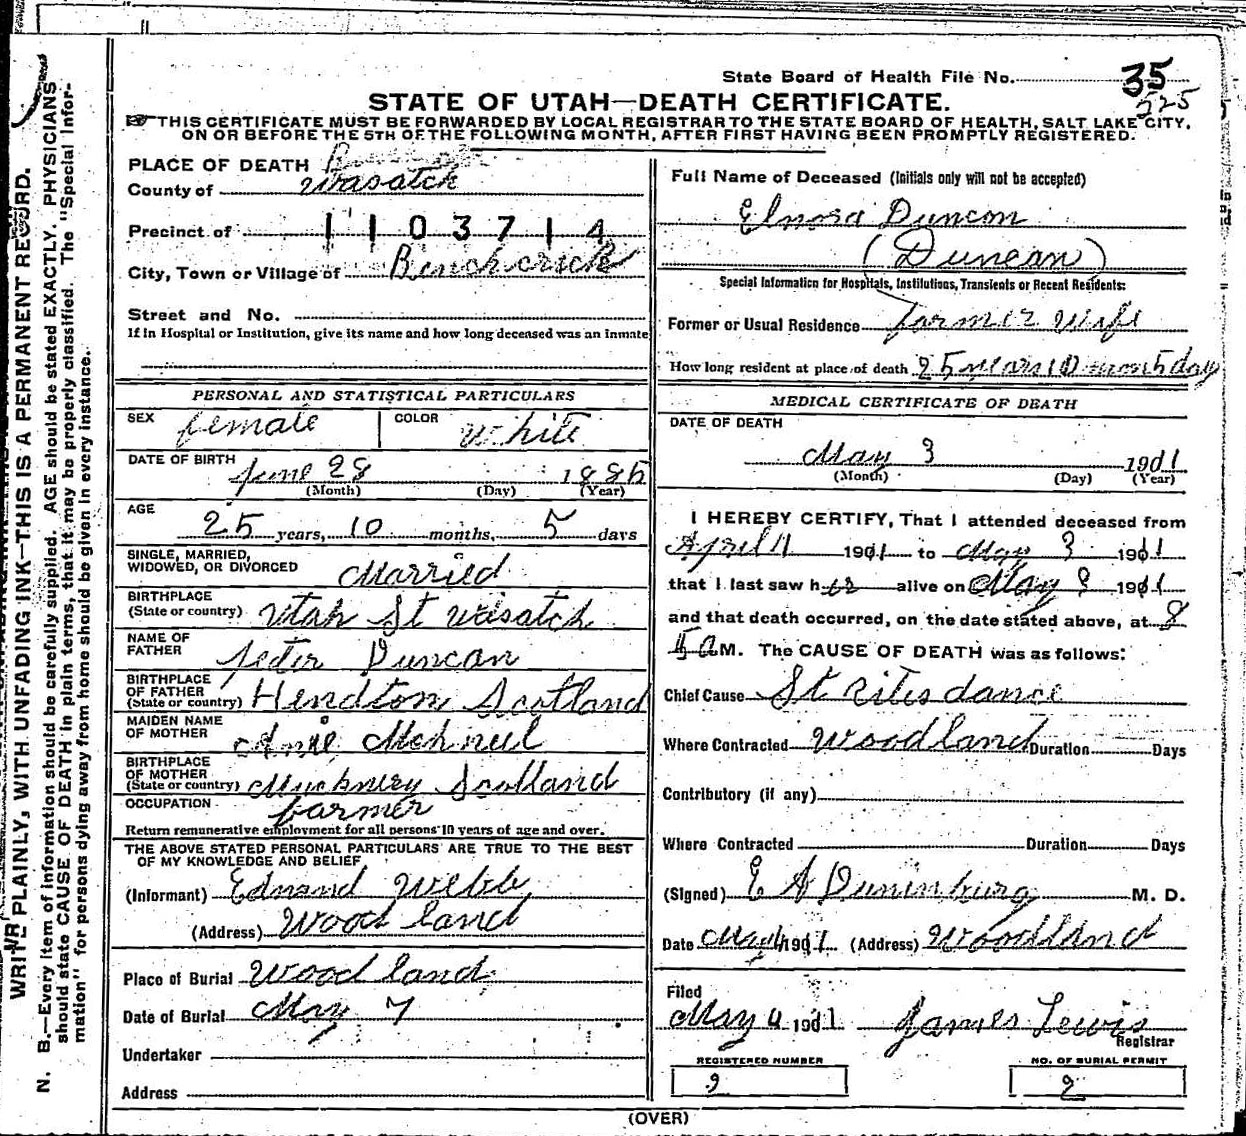 State Board of Health File No. 35
225
STATE OF UTAH—DEATH CERTIFICATE.
THIS CERTIFICATE MUST BE FORWARDED BY LOCAL REGISTRAR TO THE STATE BOARD OF HEALTH, SALT LAKE CITY,
ON OR BEFORE THE 5TH OF THE FOLLOWING MONTH, AFTER FIRST HAVING BEEN PROMPTLY REGISTERED.
PLACE OF DEATH
County of Wasatch
Precinct of 1103714
City, Town or Village of Benchcreek
Street and No.
If in Hospital or Institution, give its name and how long deceased was an inmate
PERSONAL AND STATISTICAL PARTICULARS
SEX female COLOR White
DATE OF BIRTH June 28 1885
(Month) (Day) (Year)
AGE
25 years, 10 months, 5 days
SINGLE, MARRIED,
WIDOWED, OR DIVORCED Married
BIRTHPLACE
(State or country) Utah St Wasatch
NAME OF
FATHER Peter Duncan
BIRTHPLACE
OF FATHER
(State or country) Hendton Scotland
MAIDEN NAME
OF MOTHER Anne McNeil
BIRTHPLACE
OF MOTHER
(State or country) Scotland
OCCUPATION farmer
Return remunerative employment for all persons 10 years of age and over.
THE ABOVE STATED PERSONAL PARTICULARS ARE TRUE TO THE BEST
OF MY KNOWLEDGE AND BELIEF
(Informant) Edmand Webb
(Address) Woodland
Place of Burial Woodland
Date of Burial May 7
Undertaker
Address
Full Name of Deceased (Initials only will not be accepted)
Elnora Duncan
(Duncan)
Special Information for Hospitals, Institutions, Transients or Recent Residents:
Former or Usual Residence farmer wife
How long resident at place of death 25 years 10 mon 5 day
MEDICAL CERTIFICATE OF DEATH
DATE OF DEATH
May 3 1901
(Month) (Day) (Year)
I HEREBY CERTIFY, That I attended deceased from
April 11 1911 to May 3 1911
that I last saw her alive on May 3 1911
and that death occurred, on the date stated above, at 8
15 a M. The CAUSE OF DEATH was as follows:
Chief Cause St vites dance
Where Contracted Woodland Duration Days
Contributory (if any)
Where Contracted Duration Days
(Signed) E A M. D.
Date May 1911 (Address) Woodland
Filed
May 4 1911 James Lewis
Registrar
REGISTERED NUMBER NO. OF BURIAL PERMIT
2 2
(OVER)
WRITE PLAINLY, WITH UNFADING INK—THIS IS A PERMANENT RECORD.
N. B.—Every item of information should be carefully supplied. AGE should be stated EXACTLY. PHYSICIANS
should state CAUSE OF DEATH in plain terms, that it may be properly classified. The "Special Infor-
mation" for persons dying away from home should be given in every instance.